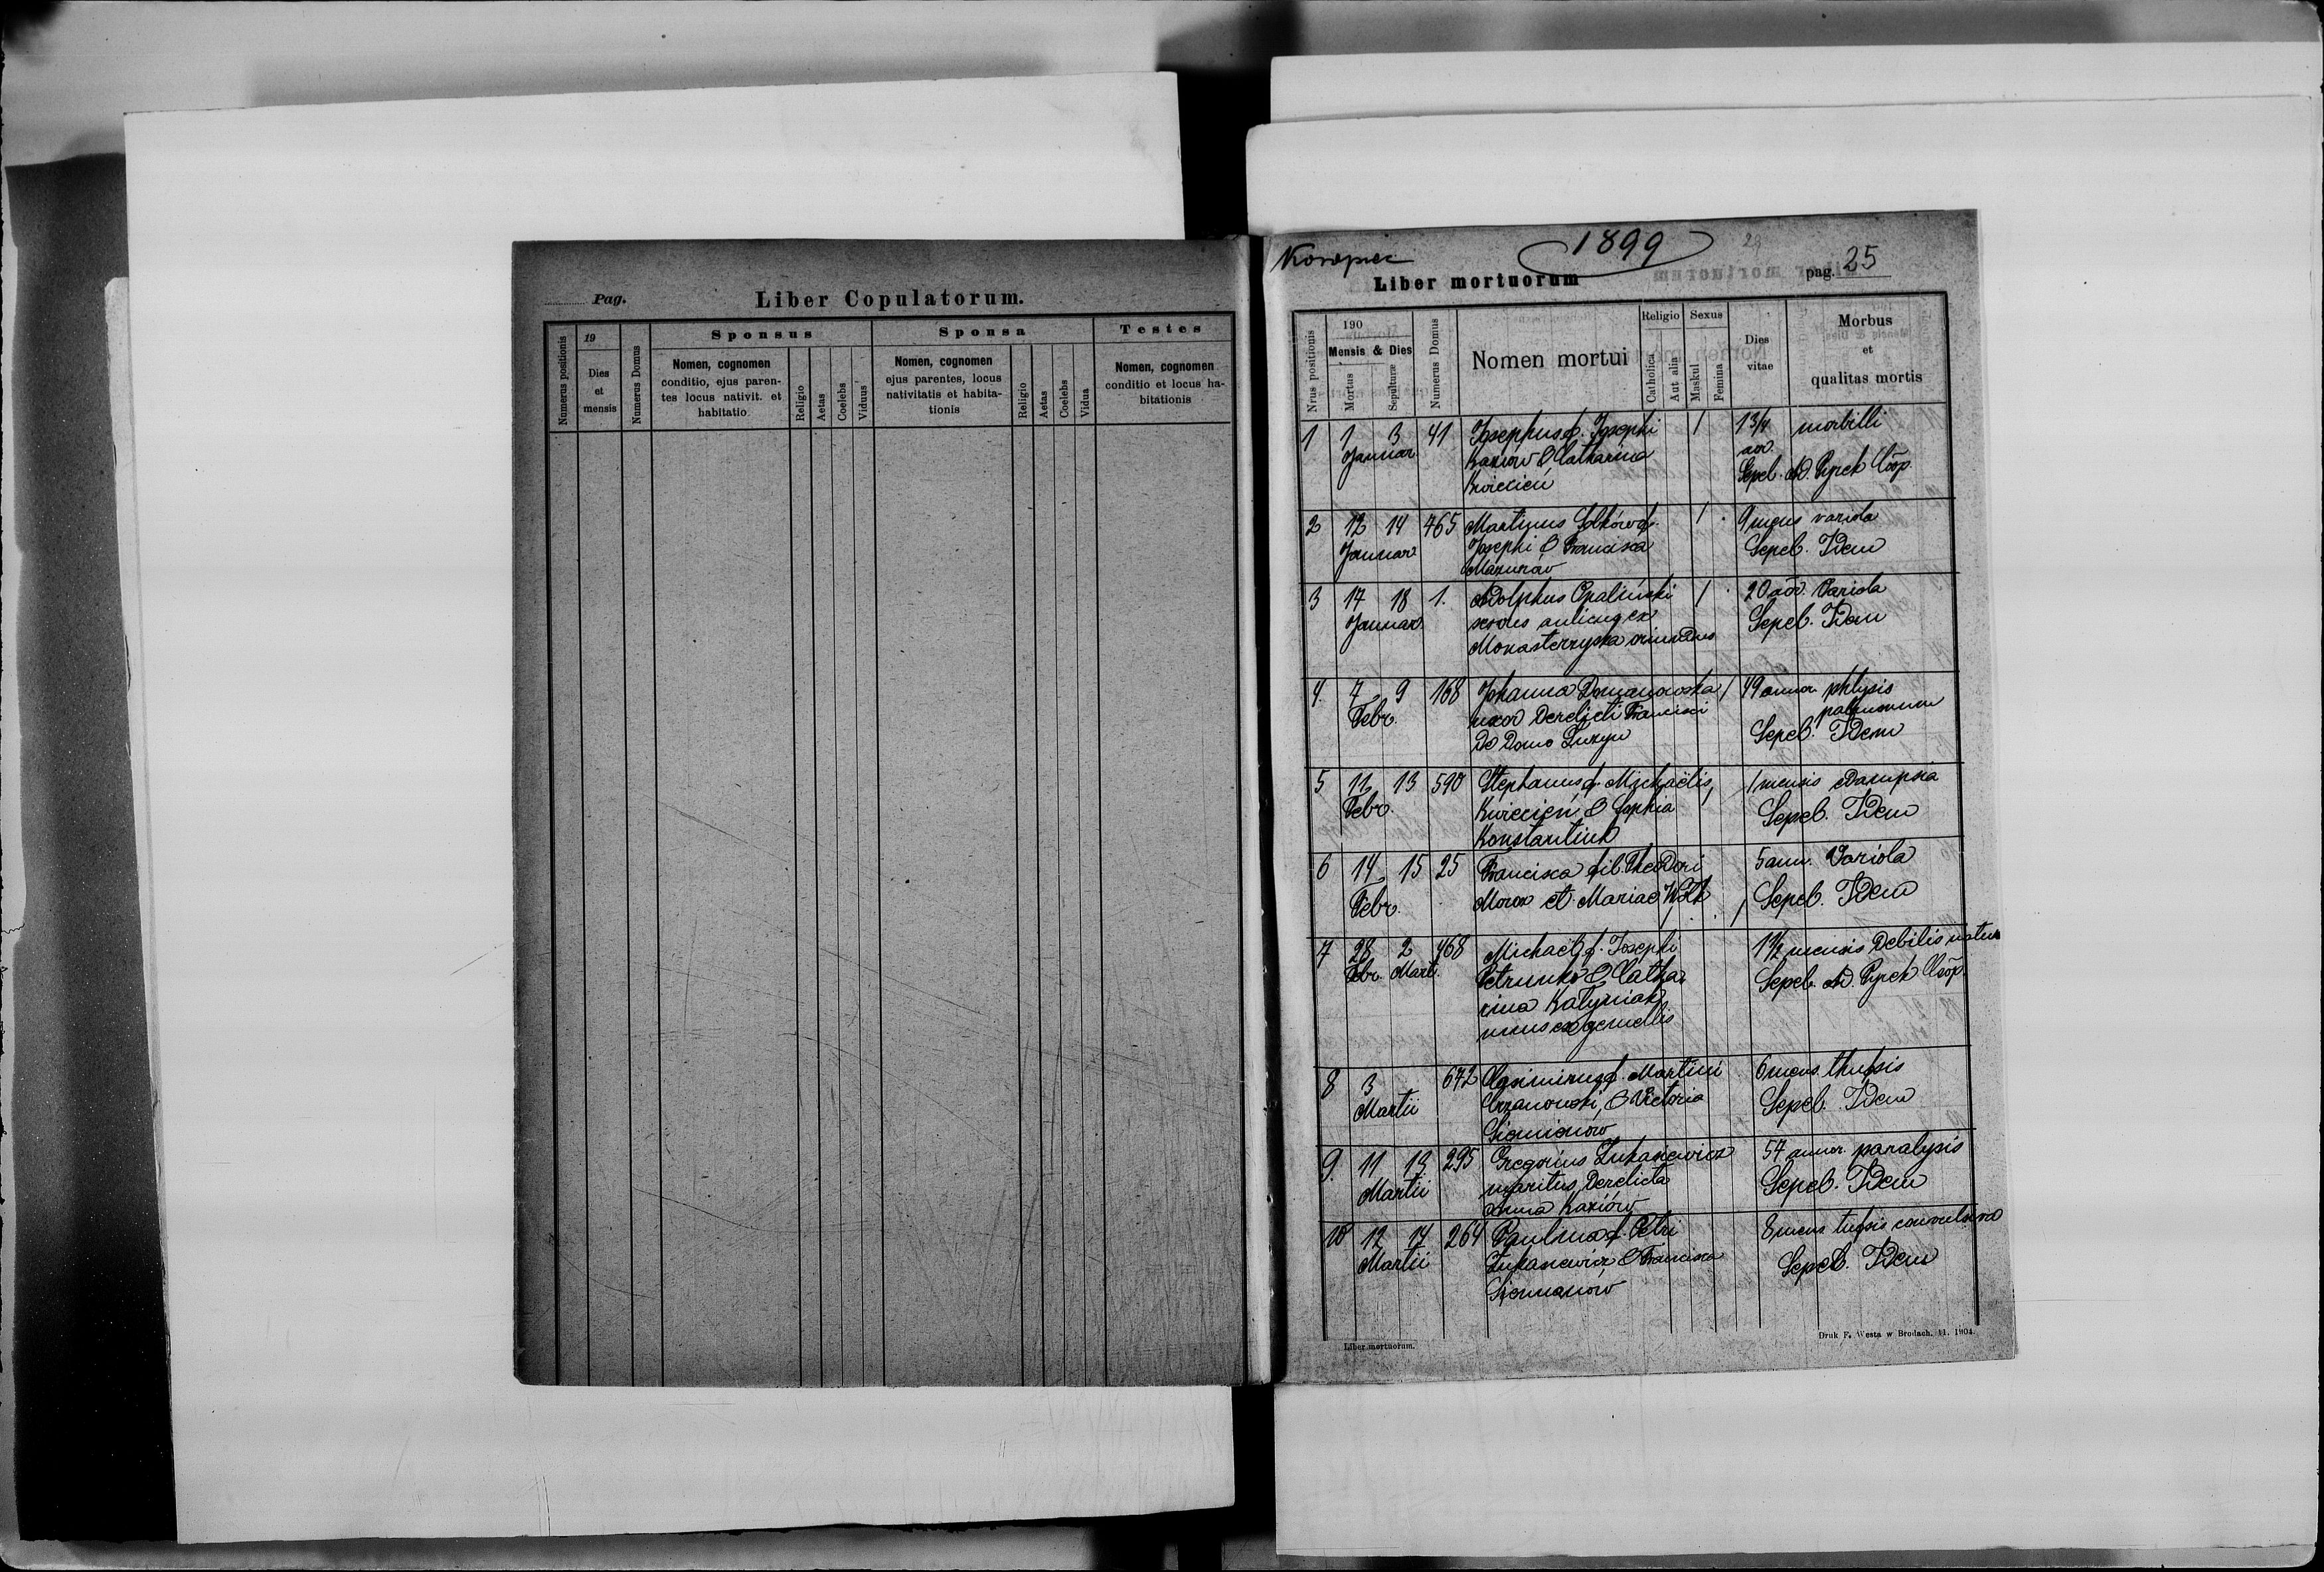 Pag.
Liber Copulatorum.
Numerus positionis
19
Dies
et
mensis
Numerus Domus
Sponsus
Nomen, cognomen
conditio, ejus paren-
tes locus nativit. et
habitatio
Religio
Aetas
Coelebs
Viduus
Sponsa
Nomen, cognomen
ejus parentes, locus
nativitatis et habita-
tionis
Religio
Aetas
Coelebs
Vidua
Testes
Nomen, cognomen
conditio et locus ha-
bitationis
1899
Liber mortuorum
pag. 25
Nrus positionis
190
Mensis & Dies
Mortus
Sepulturæ
Numerus Domus
Nomen mortui
Religio
Catholica
Aut alia
Sexus
Maskul
Femina
Dies
vitae
Morbus
et
qualitas mortis
1 1 3 41 Josephus f. Josephi / 1 3/4 morbilli
Januar Kaziów & Catharina aor.
Kwiecień Sepel. Ad. Pyrek Coop.
2 12 14 465 Martinus f. / 9 mens variola
Januar Josephi & Francisca Sepel. Idem
Mazurów
3 17 18 1. Adolphus Opaliński / 20 aor. Variola
Januar servus aulicus ex Sepel. Idem
Monasterzyska oriundus
4. 7 9 168 Johanna Domanowska / 49 annor. phtysis
Febr. uxor derelicti Francisci pulmonum
de domo Luzyn Sepel. Idem
5 11 13 590 Stephanus f. Michaëlis / 1 mensis
Febr. Kwiecień & Sophia Sepel. Idem
Konstantiuk
6 14 15 25 Francisca fil. Theodori 5 ann. Variola
Febr. Moroz et Mariae Wilk / Sepel. Idem
7 28 2 468 Michaël f. Josephi 1 1/2 mensis Debilis natura
Febr. Mart. Petrunko & Catha- Sepel. Ad. Pyrek Coop.
rina Katyniak
unus ex gemellis
8 3 672 Casimirus f. Martini 6 mens. thussis
Martii Crzanowski, & Victoria Sepel. Idem
9. 11 13 295 Gregorius Łukasiewicz 57 annor. paralysis
Martii maritus derelicta Sepel. Idem
Anna Kaziów
10 12 14 264 Paulina f. Petri 8 mens tussis convulsiva
Martii Łukasiewicz & Francisca Sepel. Idem
Liber mortuorum.
Druk F. Westa w Brodach. 11. 1904.